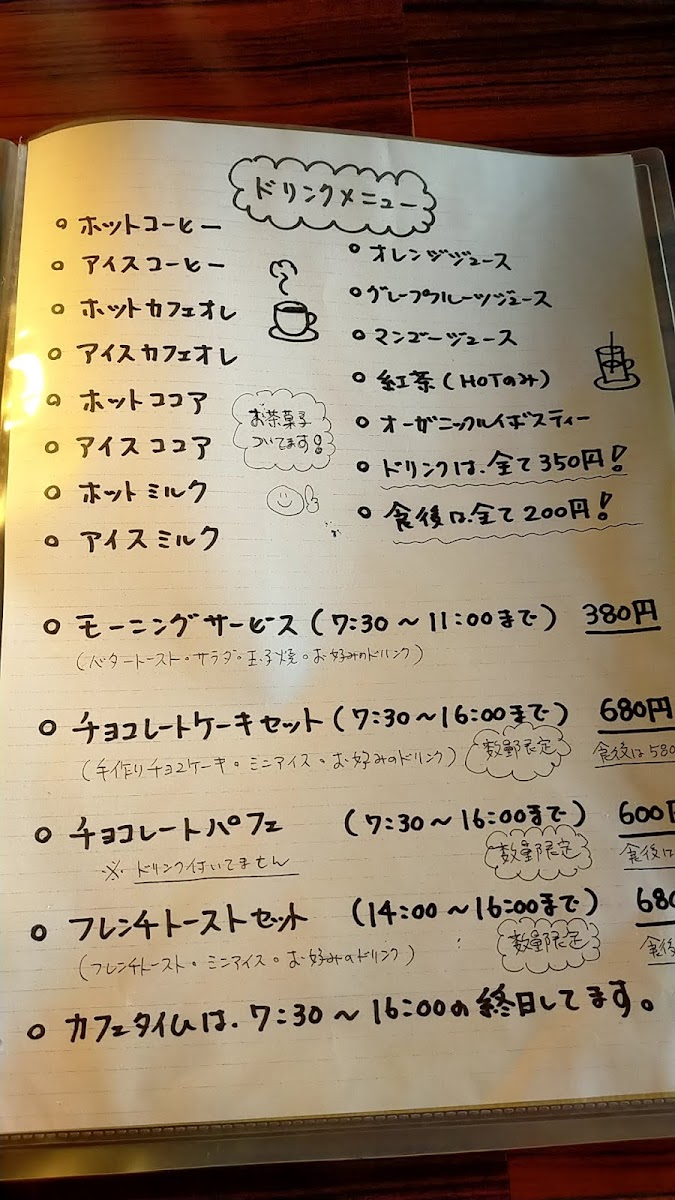 ドリンクメニュー
ホットコーヒー
アイスコーヒー
ホットカフェオレ
アイスカフェオレ
ホットココア
アイスココア
ホットミルク
アイスミルク
お茶菓子
ついてます!
オレンジジュース
グレープフルーツジュース
マンゴージュース
紅茶(HOTのみ)
オーガニックルイボスティー
ドリンクは、全て350円!
食後は、全て200円!
モーニングサービス(7:30〜11:00まで) 380円
(バタートースト・サラダ・玉子焼・お好みのドリンク)
チョコレートケーキセット(7:30〜16:00まで) 680円
(手作りチョコケーキ・ミニアイス・お好みのドリンク) 数量限定 食後は580
チョコレートパフェ (7:30〜16:00まで) 600円
※ドリンク付いてません 数量限定 食後は
フレンチトーストセット (14:00〜16:00まで) 680
(フレンチトースト・ミニアイス・お好みのドリンク) 数量限定 食後
カフェタイムは、7:30〜16:00の終日してます。